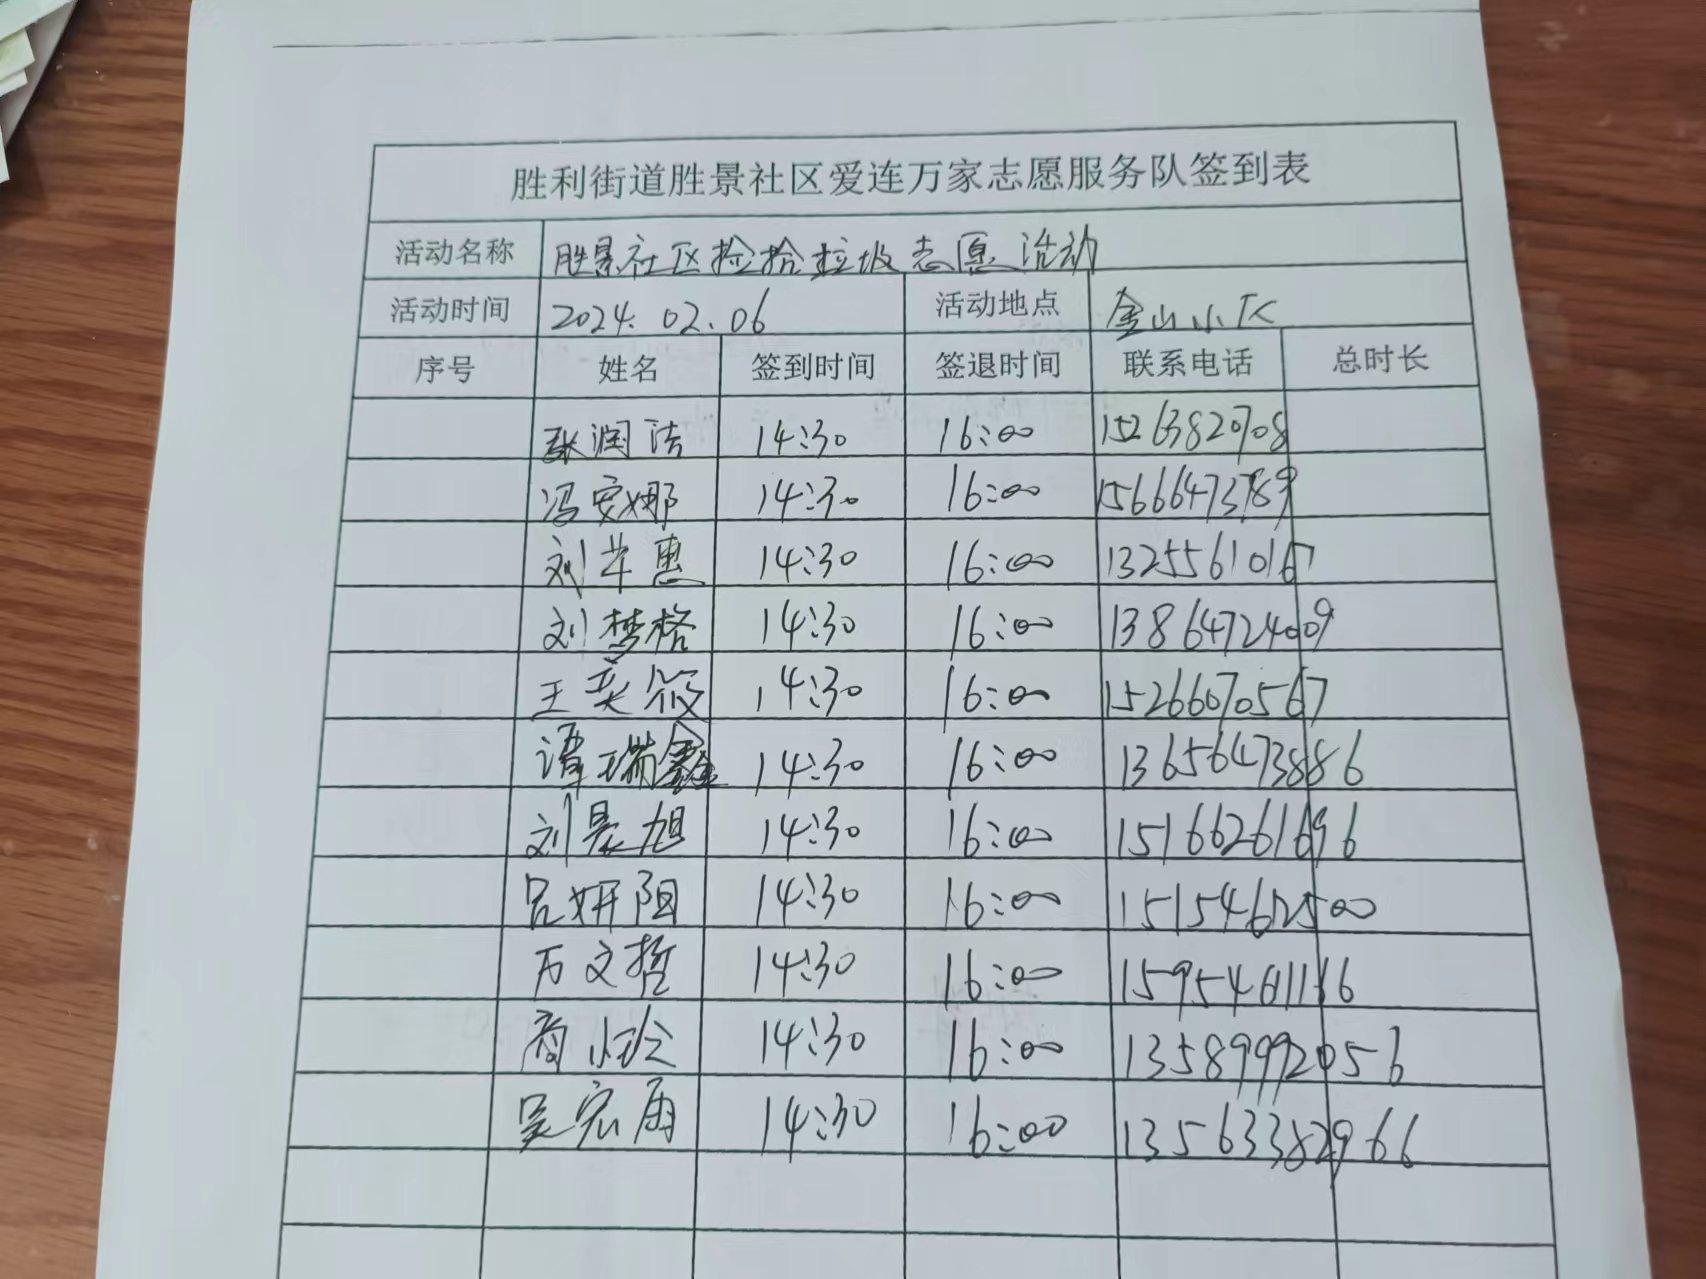 胜利街道胜景社区爱连万家志愿服务队签到表
活动名称 胜景社区捡拾垃圾志愿活动
活动时间 2024.02.06 活动地点 金山小区
序号 姓名 签到时间 签退时间 联系电话 总时长
张润洁 14:30 16:00 15263820708
冯安娜 14:30 16:00 15666473789
刘芊惠 14:30 16:00 13255610167
刘梦格 14:30 16:00 13864724009
王奕筱 14:30 16:00 15266070567
谭瑞鑫 14:30 16:00 13656473886
刘晨旭 14:30 16:00 15166261696
吕妍阳 14:30 16:00 15154612500
万文哲 14:30 16:00
商 14:30 16:00 13589992056
吴宏雨 14:30 16:00 13563382966